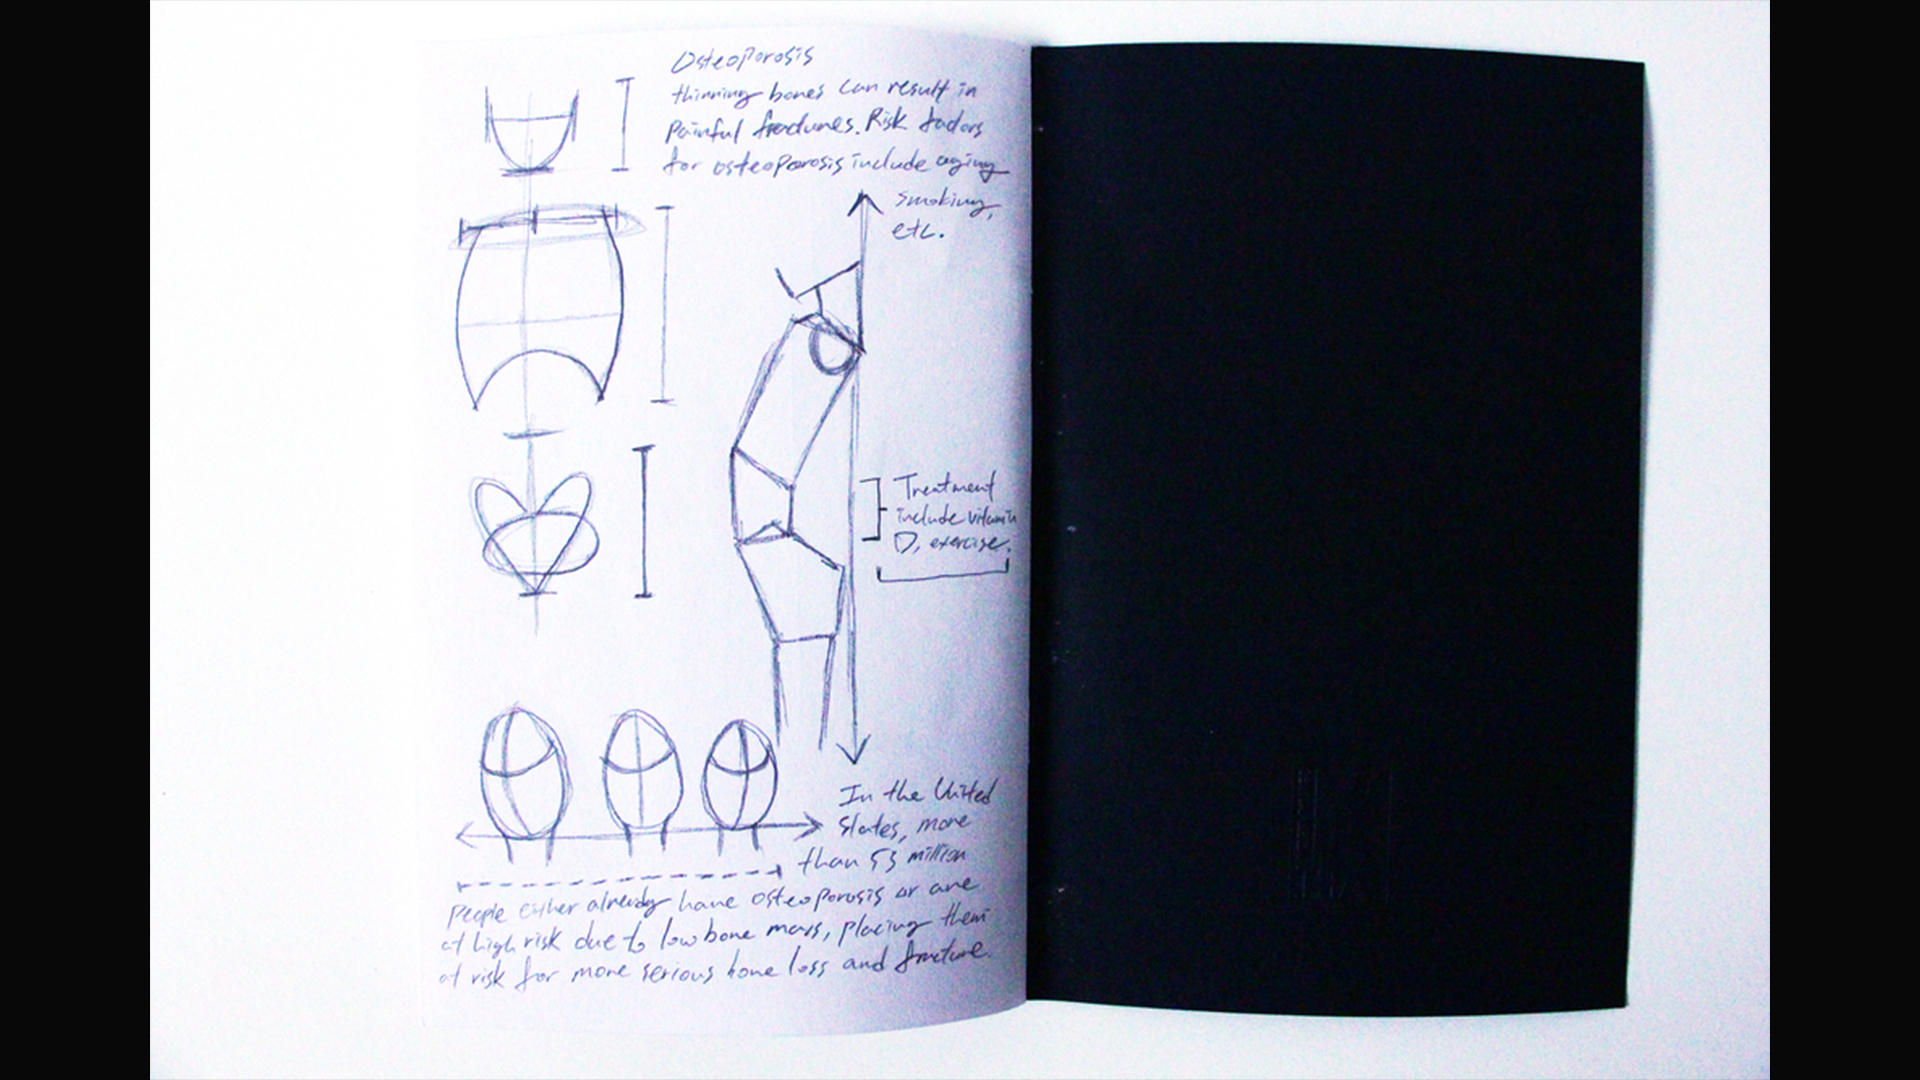 Osteoporosis
thinning bones can result in
Painful fractures. Risk factors
for osteoporosis include aging
smoking,
etc.
Treatment
include vitamin
D, exercise.
In the United
States, more
than 53 million
People either already have osteoporosis or are
at high risk due to low bone mass, placing them
at risk for more serious bone loss and fracture.